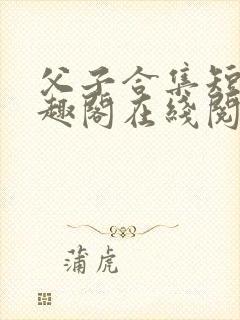 父子合集短
趣阁在线阅
蒲虎